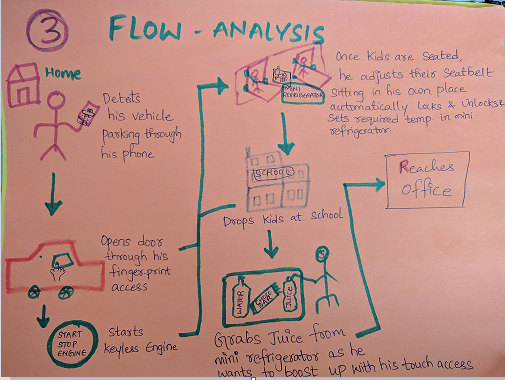 3 FLOW - ANALYSIS
Home
Detets
his vehicle
parking through
his phone
Opens door
through his
finger-print
access
START
STOP
ENGINE
Starts
Keyless Engine
MINI
REFRIGERATOR
Once Kids are Seated,
he adjusts their Seatbelt
Sitting in his own place
automatically Locks & Unlocks &
Sets required temp. in mini
refrigerator
SCHOOL
Drops kids at school
WATER
JUICE
Grabs Juice from
mini refrigerator as he
wants to boost up with his touch access
Reaches
Office